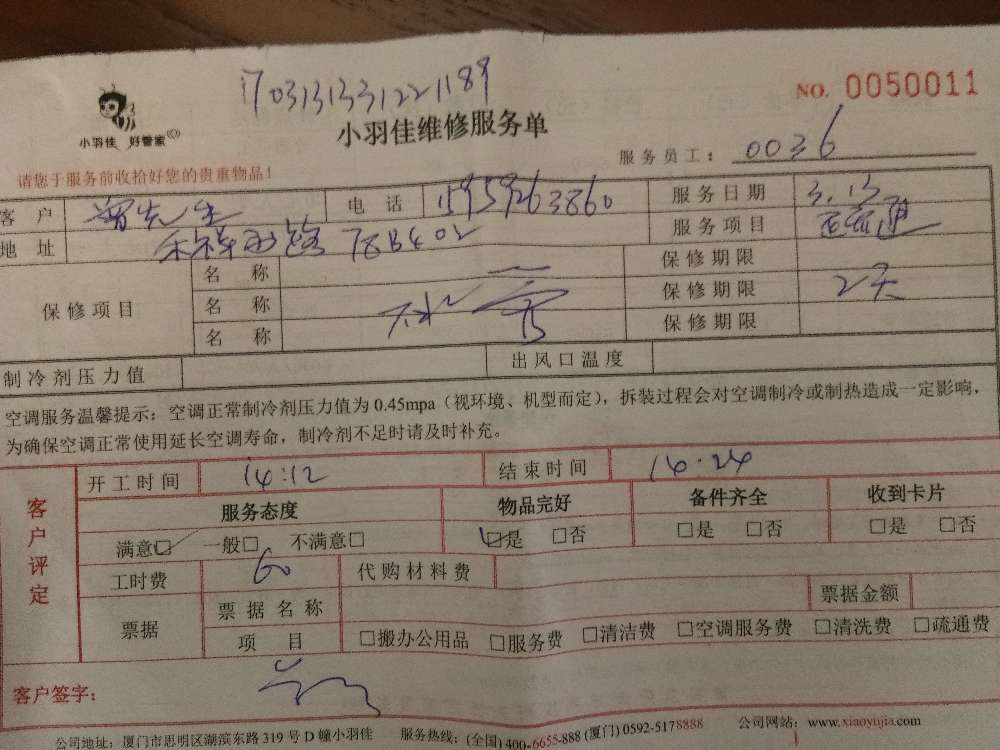 1703131331221189
NO. 0050011
小羽佳 好管家
小羽佳维修服务单
服务员工： 0036
请您于服务前收拾好您的贵重物品！
客 户 曾先生 电 话 15959263860 服务日期 3.13
地 址 78B402 服务项目
保修项目 名 称 保修期限
名 称 保修期限 2天
名 称 保修期限
制冷剂压力值 出风口温度
空调服务温馨提示：空调正常制冷剂压力值为 0.45mpa（视环境、机型而定），拆装过程会对空调制冷或制热造成一定影响，
为确保空调正常使用延长空调寿命，制冷剂不足时请及时补充。
客户评定
开工时间 14:12 结束时间 14.24
服务态度 物品完好 备件齐全 收到卡片
满意☑ 一般□ 不满意□ ☑是 □否 □是 □否 □是 □否
工时费 60 代购材料费
票据 票据名称 票据金额
项 目 □搬办公用品 □服务费 □清洁费 □空调服务费 □清洗费 □疏通费
客户签字：
公司地址：厦门市思明区湖滨东路 319 号 D 幢小羽佳 服务热线：(全国) 400-6655-888 (厦门) 0592-5178888 公司网站：www.xiaoyujia.com